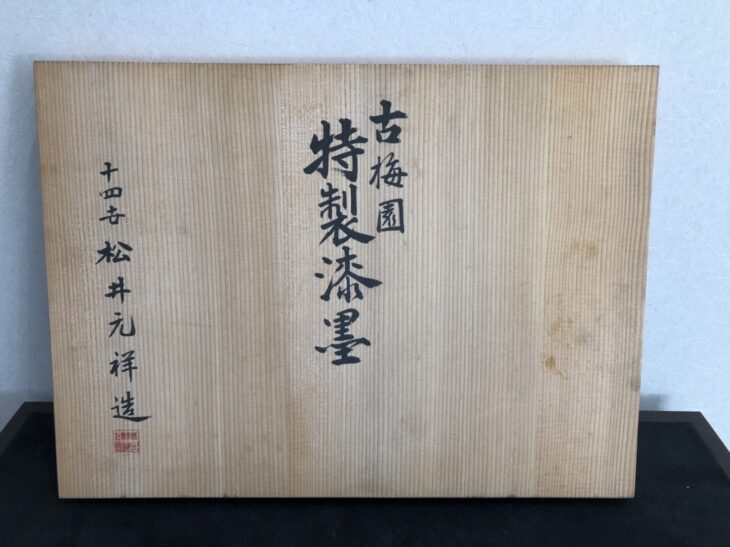 古梅園
特製漆墨
十四世松井元祥造